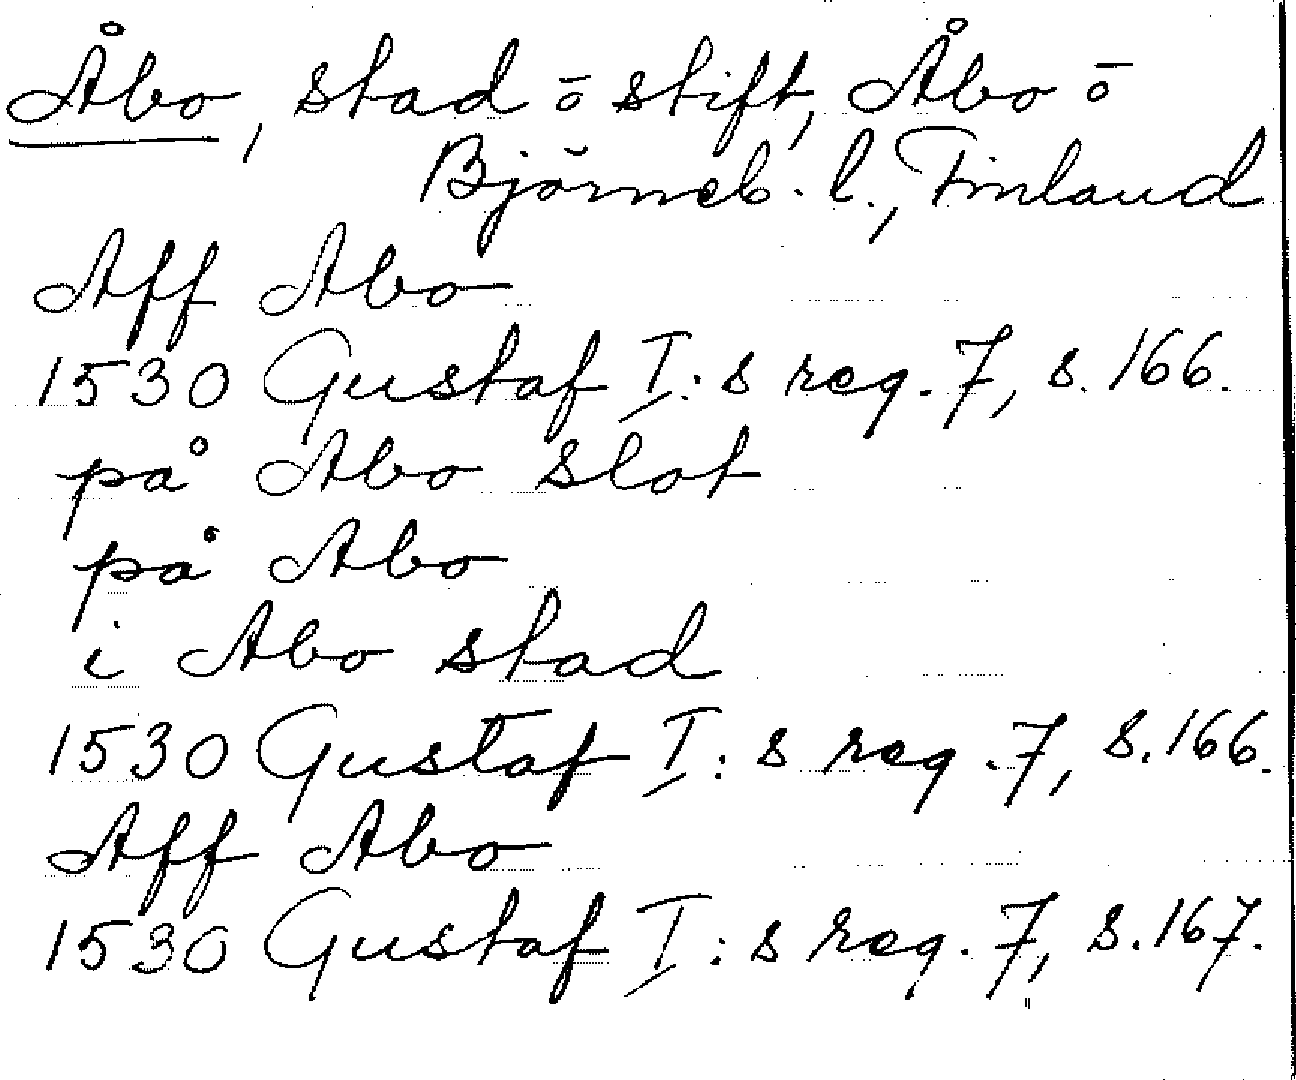 Åbo, stad ō stift, Åbo ō
Björneb. l., Finland
Aff Abo
1530 Gustaf I:s reg. 7, s. 166.
på Abo slot
på Abo
i Abo stad
1530 Gustaf I:s reg. 7, s. 166.
Aff Abo
1530 Gustaf I:s reg. 7, s. 167.